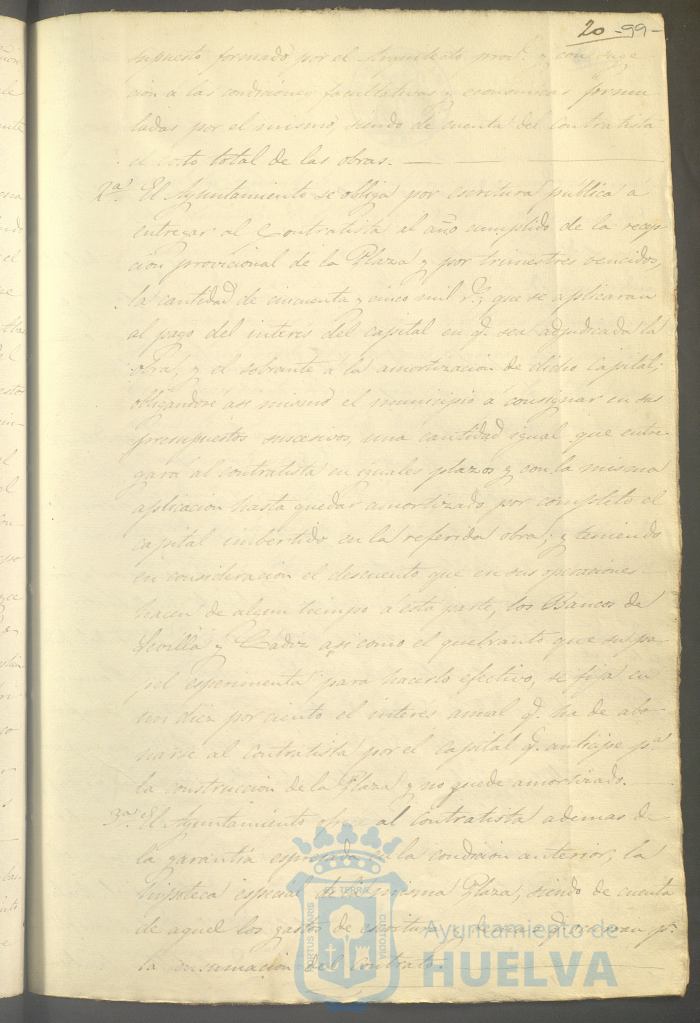 20 -99-
supuesto formado por el Arquitecto prov.l y con suge
cion a las condiciones facultativas y economicas formu
ladas por el mismo, siendo de cuenta del contratista
el costo total de las obras.
2ª. El Ayuntamiento se obliga por escritura publica á
entregar al Contratista al año cumplido de la recep-
cion provicional de la Plaza y por trimestres vencidos,
la cantidad de cincuenta y cinco mil r.s, que se aplicaran
al pago del interes del capital en q.e sea adjudicada la
obra, y el sobrante á la amortizacion de dicho Capital;
obligandose asi mismo el municipio á consignar en sus
presupuestos sucesivos, una cantidad igual que entre
gará al contratista en iguales plazos y con la misma
aplicacion hasta quedar amortizado por completo el
capital imbertido en la referida obra; y teniendo
en consideracion el descuento que en sus operaciones
hacen de algun tiempo á esta parte, los Bancos de
Sevilla y Cadiz asi como el quebranto que su pa-
pel esperimenta para hacerlo efectivo, se fija en
un diez por ciento el interes anual q.e ha de abo-
narse al contratista por el capital q.e anticipe p.a
la construccion de la Plaza y no quede amortizado.
3ª. El Ayuntamiento ofrece al contratista ademas de
la garantia espresada en la condicion anterior, la
hipoteca especial de la misma Plaza, siendo de cuenta
de aquel los gastos de escritura y demas q.e ocurran p.a
la consumacion del Contrato.
EL TERRAE
PORTUS MARIS
CUSTODIA
Ayuntamiento de
HUELVA